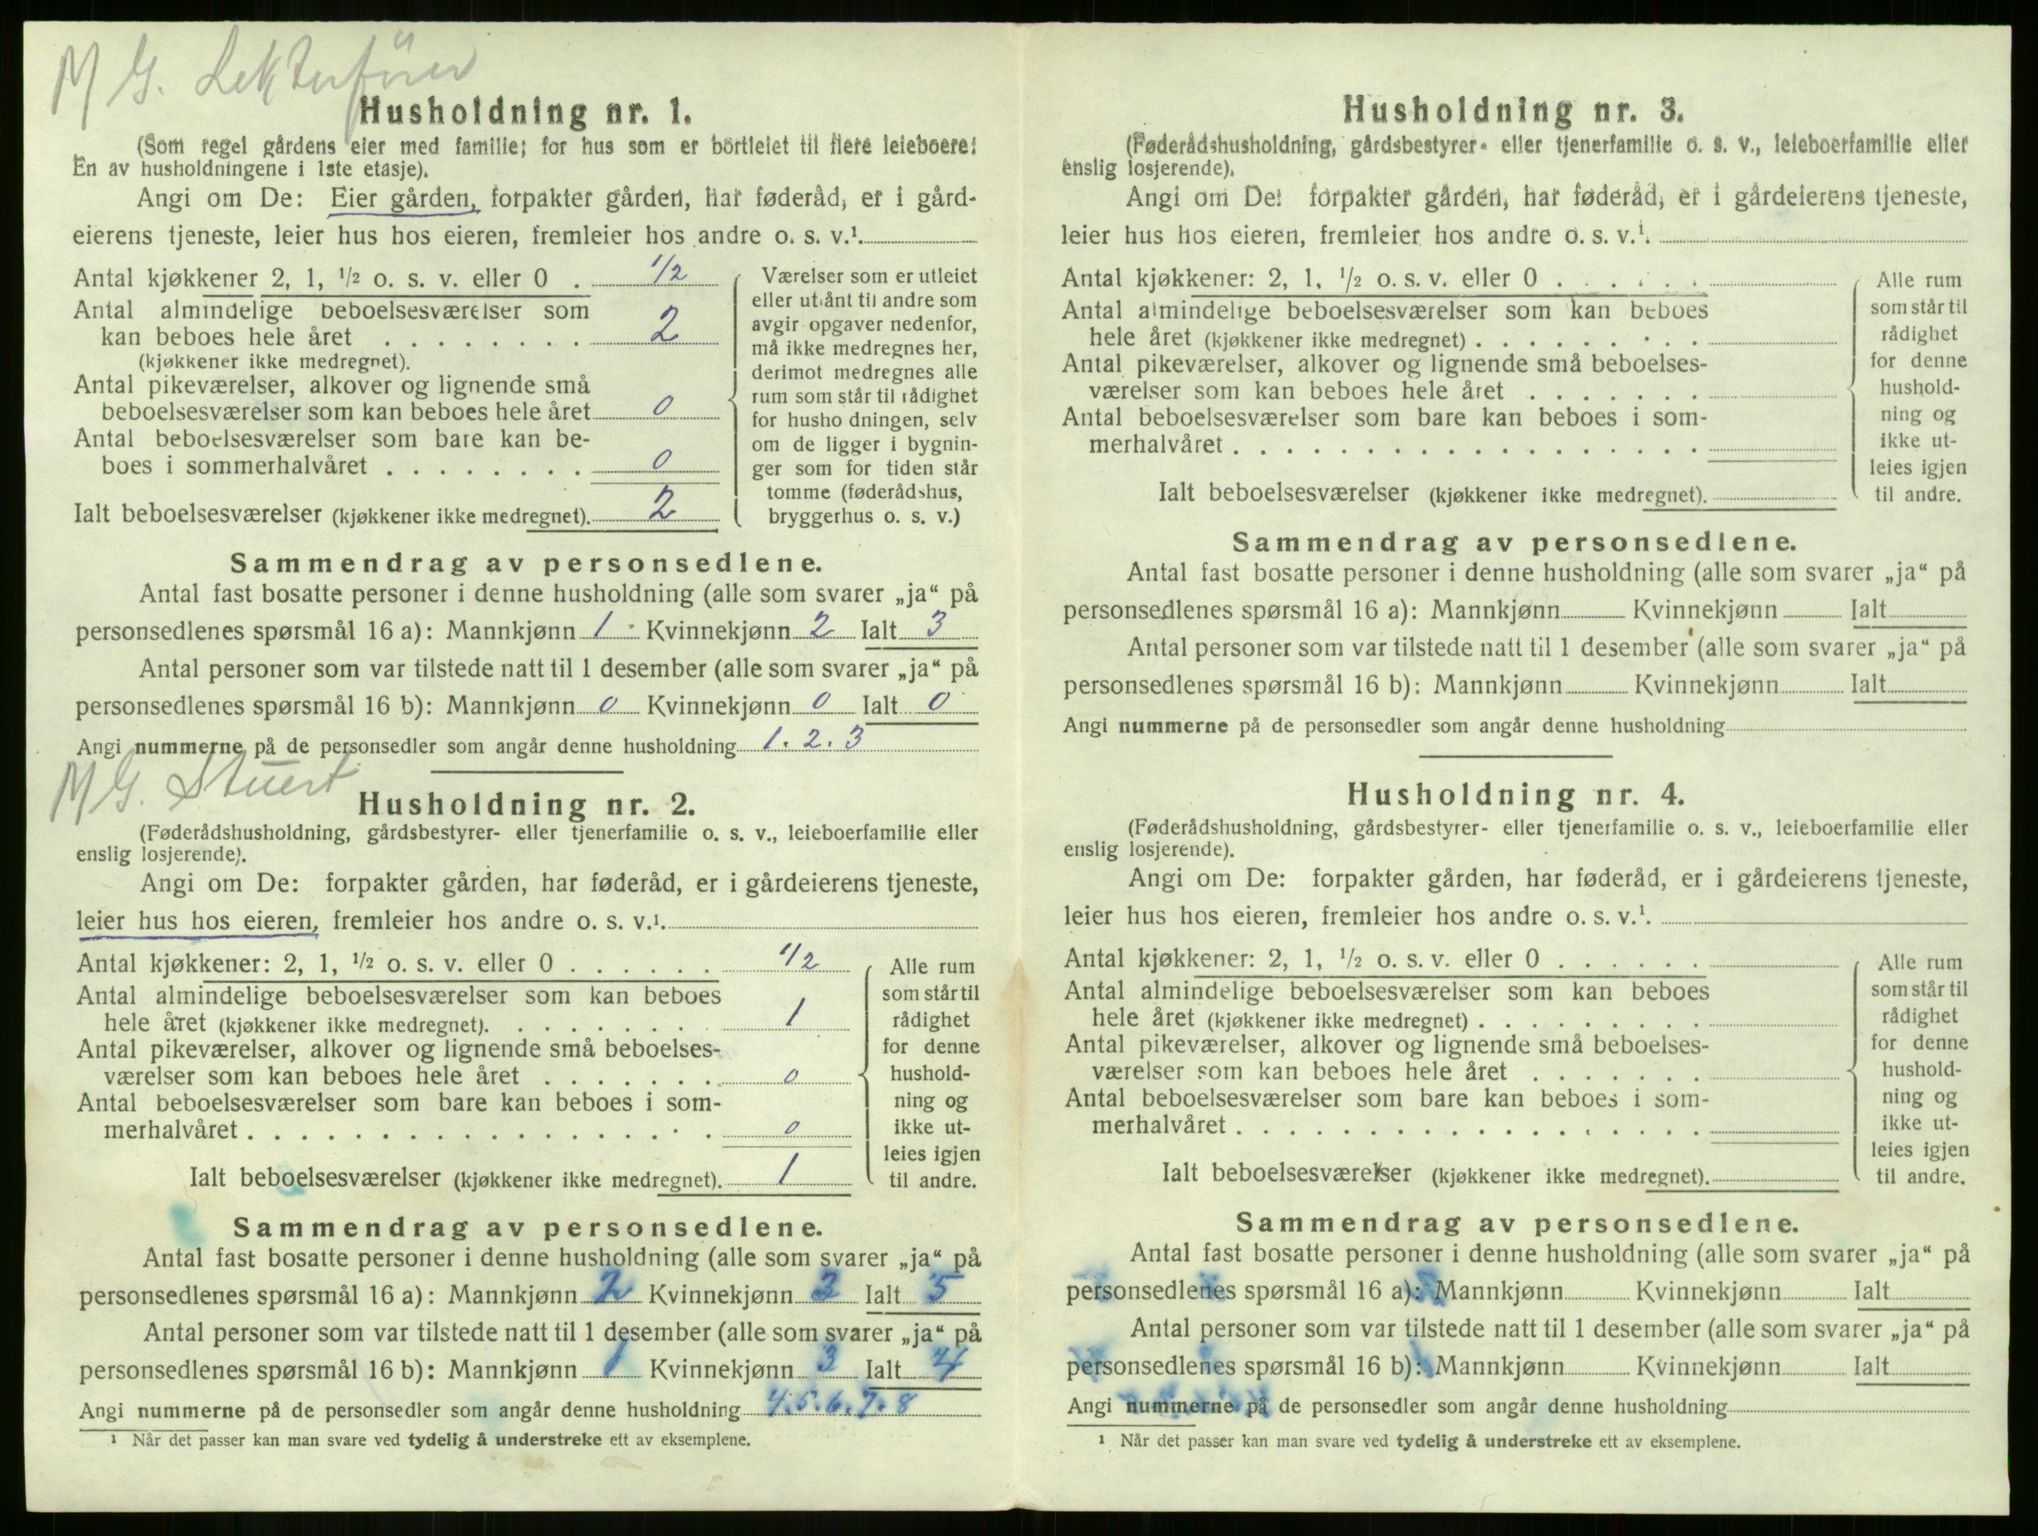 M G. Lekterfører
Husholdning nr. 1.
(Som regel gårdens eier med familie; for hus som er bortleiet til flere leieboere:
En av husholdningene i 1ste etasje).
Angi om De: Eier gården, forpakter gården, har føderåd, er i gård-
eierens tjeneste, leier hus hos eieren, fremleier hos andre o. s. v.¹
Antal kjøkkener 2, 1, 1/2 o. s. v. eller 0 . 1/2
Antal almindelige beboelsesværelser som
kan beboes hele året . . . . . . . . 2
(kjøkkener ikke medregnet).
Antal pikeværelser, alkover og lignende små
beboelsesværelser som kan beboes hele året 0
Antal beboelsesværelser som bare kan be-
boes i sommerhalvåret . . . . . . . . 0
Ialt beboelsesværelser (kjøkkener ikke medregnet). 2
Værelser som er utleiet
eller utlånt til andre som
avgir opgaver nedenfor,
må ikke medregnes her,
derimot medregnes alle
rum som står til rådighet
for husholdningen, selv
om de ligger i bygnin-
ger som for tiden står
tomme (føderådshus,
bryggerhus o. s. v.)
Sammendrag av personsedlene.
Antal fast bosatte personer i denne husholdning (alle som svarer „ja“ på
personsedlenes spørsmål 16 a): Mannkjønn 1 Kvinnekjønn 2 Ialt 3
Antal personer som var tilstede natt til 1 desember (alle som svarer „ja“ på
personsedlenes spørsmål 16 b): Mannkjønn 0 Kvinnekjønn 0 Ialt 0
Angi nummerne på de personsedler som angår denne husholdning 1. 2. 3
M G. Stuert
Husholdning nr. 2.
(Føderådshusholdning, gårdsbestyrer- eller tjenerfamilie o. s. v., leieboerfamilie eller
enslig losjerende).
Angi om De: forpakter gården, har føderåd, er i gårdeierens tjeneste,
leier hus hos eieren, fremleier hos andre o. s. v.¹
Antal kjøkkener: 2, 1, 1/2 o. s. v. eller 0 . . . . . . 1/2
Antal almindelige beboelsesværelser som kan beboes
hele året (kjøkkener ikke medregnet). . . . . . . . 1
Antal pikeværelser, alkover og lignende små beboelses-
værelser som kan beboes hele året . . . . . . . 0
Antal beboelsesværelser som bare kan beboes i som-
merhalvåret . . . . . . . . . . . . . . . . . . 0
Ialt beboelsesværelser (kjøkkener ikke medregnet). 1
Alle rum
som står til
rådighet
for denne
hushold-
ning og
ikke ut-
leies igjen
til andre.
Sammendrag av personsedlene.
Antal fast bosatte personer i denne husholdning (alle som svarer „ja“ på
personsedlenes spørsmål 16 a): Mannkjønn 2 Kvinnekjønn 3 Ialt 5
Antal personer som var tilstede natt til 1 desember (alle som svarer „ja“ på
personsedlenes spørsmål 16 b): Mannkjønn 1 Kvinnekjønn 3 Ialt 4
Angi nummerne på de personsedler som angår denne husholdning 4. 5. 6. 7. 8
¹ Når det passer kan man svare ved tydelig å understreke ett av eksemplene.
Husholdning nr. 3.
(Føderådshusholdning, gårdsbestyrer- eller tjenerfamilie o. s. v., leieboerfamilie eller
enslig losjerende).
Angi om De: forpakter gården, har føderåd, er i gårdeierens tjeneste,
leier hus hos eieren, fremleier hos andre o. s. v.¹.
Antal kjøkkener: 2, 1, 1/2 o. s. v. eller 0 . . . . . .
Antal almindelige beboelsesværelser som kan beboes
hele året (kjøkkener ikke medregnet) . . . . . . . . .
Antal pikeværelser, alkover og lignende små beboelses-
værelser som kan beboes hele året . . . . . . .
Antal beboelsesværelser som bare kan beboes i som-
merhalvåret . . . . . . . . . . . . . . . . . .
Ialt beboelsesværelser (kjøkkener ikke medregnet).
Alle rum
som står til
rådighet
for denne
hushold-
ning og
ikke ut-
leies igjen
til andre.
Sammendrag av personsedlene.
Antal fast bosatte personer i denne husholdning (alle som svarer „ja“ på
personsedlenes spørsmål 16 a): Mannkjønn Kvinnekjønn Ialt
Antal personer som var tilstede natt til 1 desember (alle som svarer „ja“ på
personsedlenes spørsmål 16 b): Mannkjønn Kvinnekjønn Ialt
Angi nummerne på de personsedler som angår denne husholdning
Husholdning nr. 4.
(Føderådshusholdning, gårdsbestyrer- eller tjenerfamilie o. s. v., leieboerfamilie eller
enslig losjerende).
Angi om De: forpakter gården, har føderåd, er i gårdeierens tjeneste,
leier hus hos eieren, fremleier hos andre o. s. v.¹.
Antal kjøkkener: 2, 1, 1/2 o. s. v. eller 0 . . . . . .
Antal almindelige beboelsesværelser som kan beboes
hele året (kjøkkener ikke medregnet) . . . . . . . . .
Antal pikeværelser, alkover og lignende små beboelses-
værelser som kan beboes hele året . . . . . . .
Antal beboelsesværelser som bare kan beboes i som-
merhalvåret . . . . . . . . . . . . . . . . . .
Ialt beboelsesværelser (kjøkkener ikke medregnet).
Alle rum
som står til
rådighet
for denne
hushold-
ning og
ikke ut-
leies igjen
til andre.
Sammendrag av personsedlene.
Antal fast bosatte personer i denne husholdning (alle som svarer „ja“ på
personsedlenes spørsmål 16 a): Mannkjønn Kvinnekjønn Ialt
Antal personer som var tilstede natt til 1 desember (alle som svarer „ja“ på
personsedlenes spørsmål 16 b): Mannkjønn Kvinnekjønn Ialt
Angi nummerne på de personsedler som angår denne husholdning
¹ Når det passer kan man svare ved tydelig å understreke ett av eksemplene.